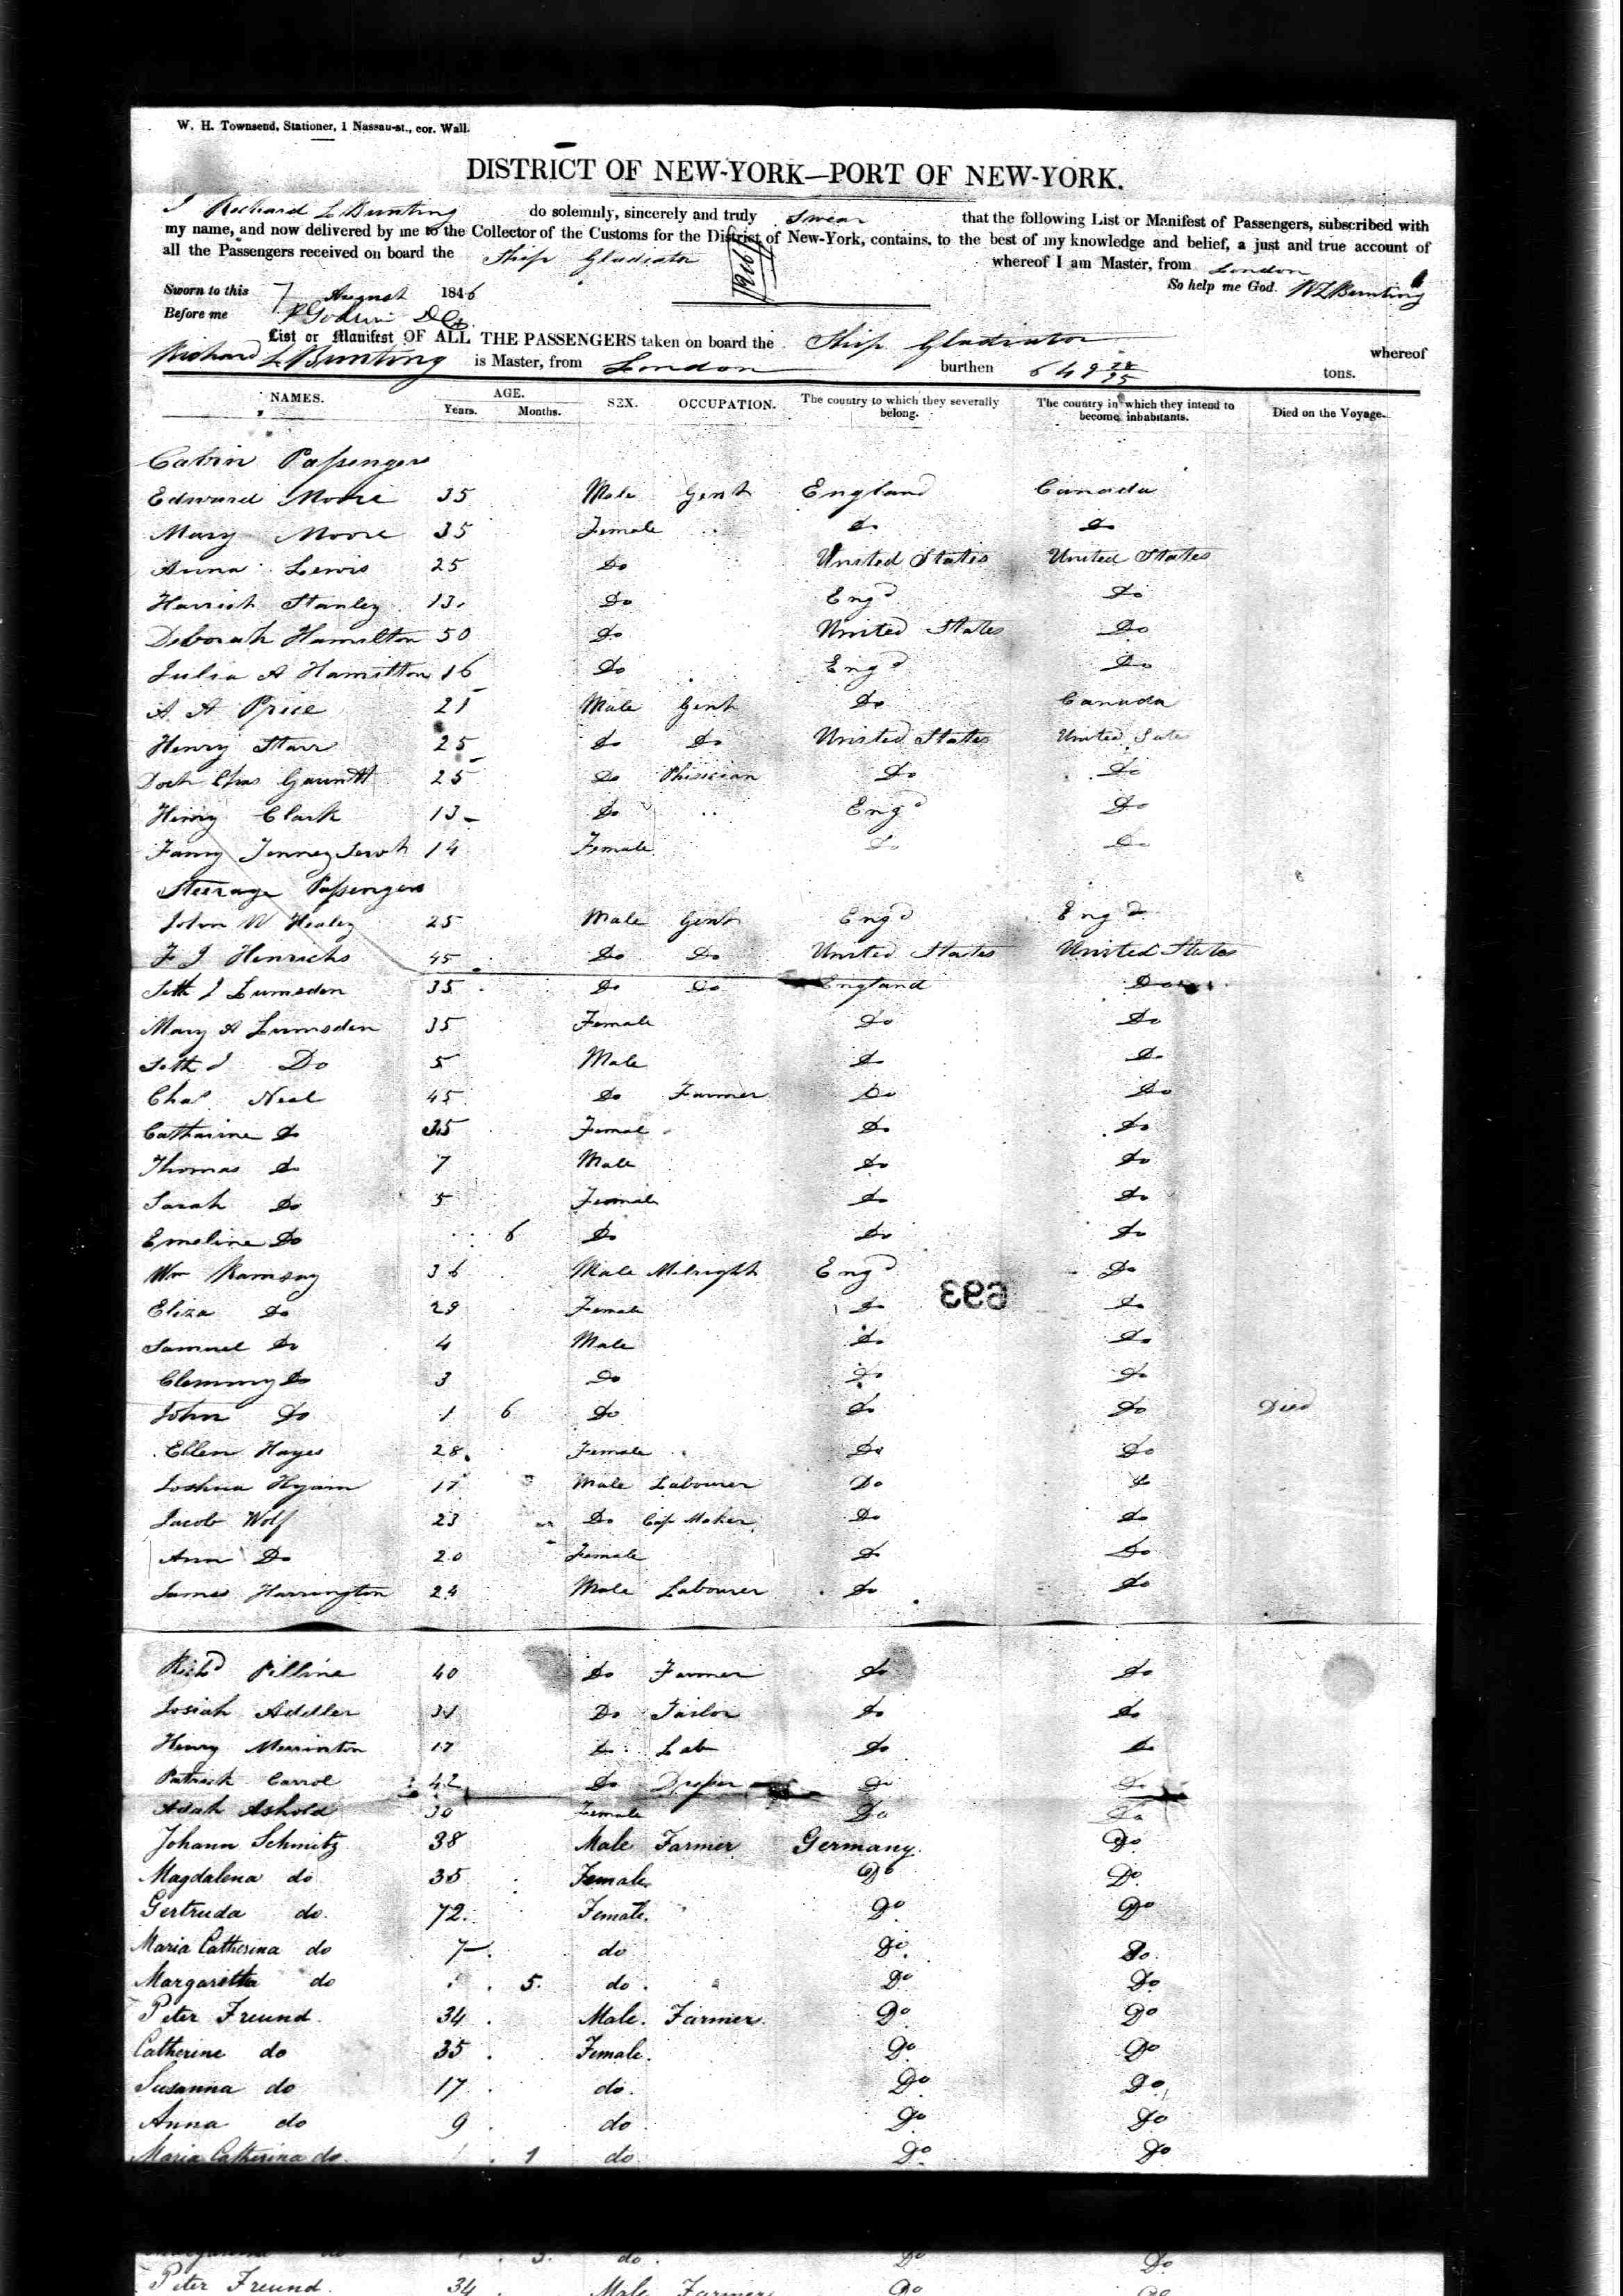 W. H. Townsend, Stationer, 1 Nassau-st., cor. Wall.
DISTRICT OF NEW-YORK—PORT OF NEW-YORK.
I Richard L Bunting do solemnly, sincerely and truly swear that the following List or Manifest of Passengers, subscribed with
my name, and now delivered by me to the Collector of the Customs for the District of New-York, contains, to the best of my knowledge and belief, a just and true account of
all the Passengers received on board the Ship Gladiator whereof I am Master, from London
Sworn to this 7 August 1846 So help me God. R L Bunting
Before me
List or Manifest OF ALL THE PASSENGERS taken on board the Ship Gladiator whereof
Richard L Bunting is Master, from London burthen 649 28/95 tons.
NAMES. AGE. Years. Months. SEX. OCCUPATION. The country to which they severally belong. The country in which they intend to become inhabitants. Died on the Voyage.
Cabin Passengers
Edward Moore 35 Male Gent England Canada
Mary Moore 35 Female Do Do
Anna Lewis 25 Do United States United States
Harriet Stanley 13 Do Engd Do
Deborah Hamilton 50 Do United States Do
Julia A Hamilton 16 Do Engd Do
A. A Price 21 Male Gent Do Canada
Henry Starr 25 Do Do United States United States
Doct Chas 25 Do Phisician Do Do
Henry Clark 13 Do Engd Do
Fanny 14 Female Do Do
Steerage Passengers
John W Healey 25 Male Gent Engd Engd
F J Henrichs 45 Do Do United States United States
Seth J Lumsden 35 Do Do England Do
Mary A Lumsden 35 Female Do Do
Seth J Do 5 Male Do Do
Chas Neal 45 Do Farmer Do Do
Catharine Do 35 Female Do Do
Thomas Do 7 Male Do Do
Sarah Do 5 Female Do Do
Emeline Do 6 Do Do Do
Wm Ramsay 36 Male Milright Engd Do
693
Eliza Do 29 Female Do Do
Samuel Do 4 Male Do Do
Clemmy Do 3 Do Do Do
John Do 1 6 Do Do Do Died
Ellen Hayes 28 Female Do Do
Joshua Hyam 17 Male Labourer Do Do
Jacob Wolf 23 Do Cap Maker Do Do
Ann Do 20 Female Do Do
James Harrington 24 Male Labourer Do Do
Richd Pilline 40 Do Farmer Do Do
Josiah Addler 31 Do Tailor Do Do
Henry Merrinton 17 Do Lab Do Do
Patrick Carrol 42 Do Draper Do Do
Adah Ashold 30 Female Do Do
Johann Schmitz 38 Male Farmer Germany Do
Magdalena do 35 Female Do Do
Gertruda do. 72. Female. Do Do
Maria Catherina do 7 do Do Do
Margaretta do 5. do. Do Do
Peter Freund. 34 Male. Farmer. Do Do
Catherine do 35 Female. Do Do
Susanna do 17 do. Do Do
Anna do 9 do Do Do
Maria Catherina do 1 do Do Do
do 5. do. Do Do
Peter Freund. 34 Male Farmer Do Do